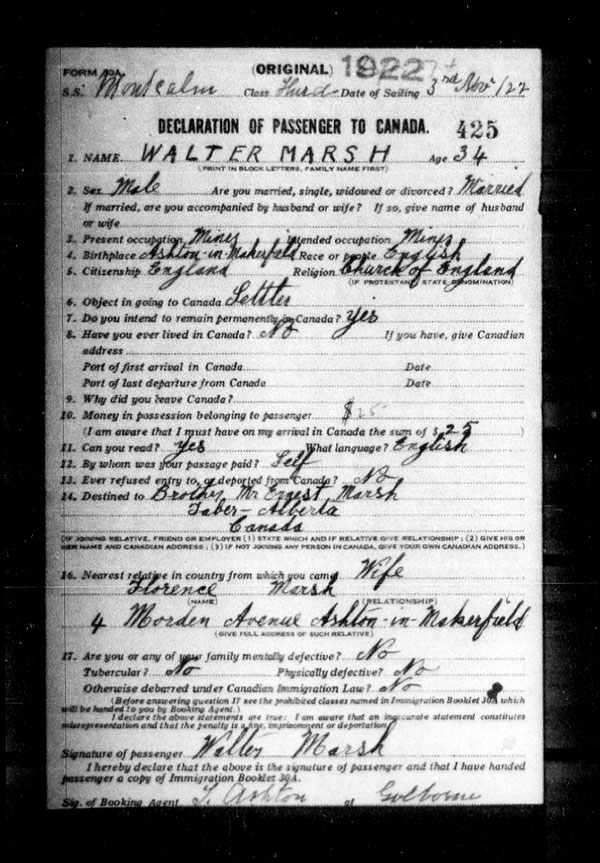 FORM 30A. (ORIGINAL) 1922
S.S. Montcalm Class Third Date of Sailing 3rd Nov/22
DECLARATION OF PASSENGER TO CANADA. 425
1. NAME. WALTER MARSH Age 34
(PRINT IN BLOCK LETTERS, FAMILY NAME FIRST)
2. Sex Male Are you married, single, widowed or divorced? Married
If married, are you accompanied by husband or wife? If so, give name of husband
or wife
3. Present occupation Miner Intended occupation Miner
4. Birthplace Ashton-in-Makerfield Race or people English
5. Citizenship England Religion Church of England
(IF PROTESTANT, STATE DENOMINATION)
6. Object in going to Canada Settler
7. Do you intend to remain permanently in Canada? yes
8. Have you ever lived in Canada? No If you have, give Canadian
address
Port of first arrival in Canada Date
Port of last departure from Canada Date
9. Why did you leave Canada?
10. Money in possession belonging to passenger $25
(I am aware that I must have on my arrival in Canada the sum of $25)
11. Can you read? yes What language? English
12. By whom was your passage paid? Self
13. Ever refused entry to, or deported from Canada? No
14. Destined to Brother Mr Ernest Marsh
Taber - Alberta
Canada
(IF JOINING RELATIVE, FRIEND OR EMPLOYER (1) STATE WHICH AND IF RELATIVE GIVE RELATIONSHIP; (2) GIVE HIS OR
HER NAME AND CANADIAN ADDRESS; (3) IF NOT JOINING ANY PERSON IN CANADA, GIVE YOUR OWN CANADIAN ADDRESS.)
16. Nearest relative in country from which you came Wife
Florence Marsh
(NAME) (RELATIONSHIP)
4 Morden Avenue Ashton-in-Makerfield
(GIVE FULL ADDRESS OF SUCH RELATIVE)
17. Are you or any of your family mentally defective? No
Tubercular? No Physically defective? No
Otherwise debarred under Canadian Immigration Law? No
(Before answering question 17 see the prohibited classes named in Immigration Booklet 30A which
will be handed to you by Booking Agent.)
I declare the above statements are true: I am aware that an inaccurate statement constitutes
misrepresentation and that the penalty is a fine, imprisonment or deportation.
Signature of passenger Walter Marsh
I hereby declare that the above is the signature of passenger and that I have handed
passenger a copy of Immigration Booklet 30A.
Sig. of Booking Agent T. Ashton at Golborne